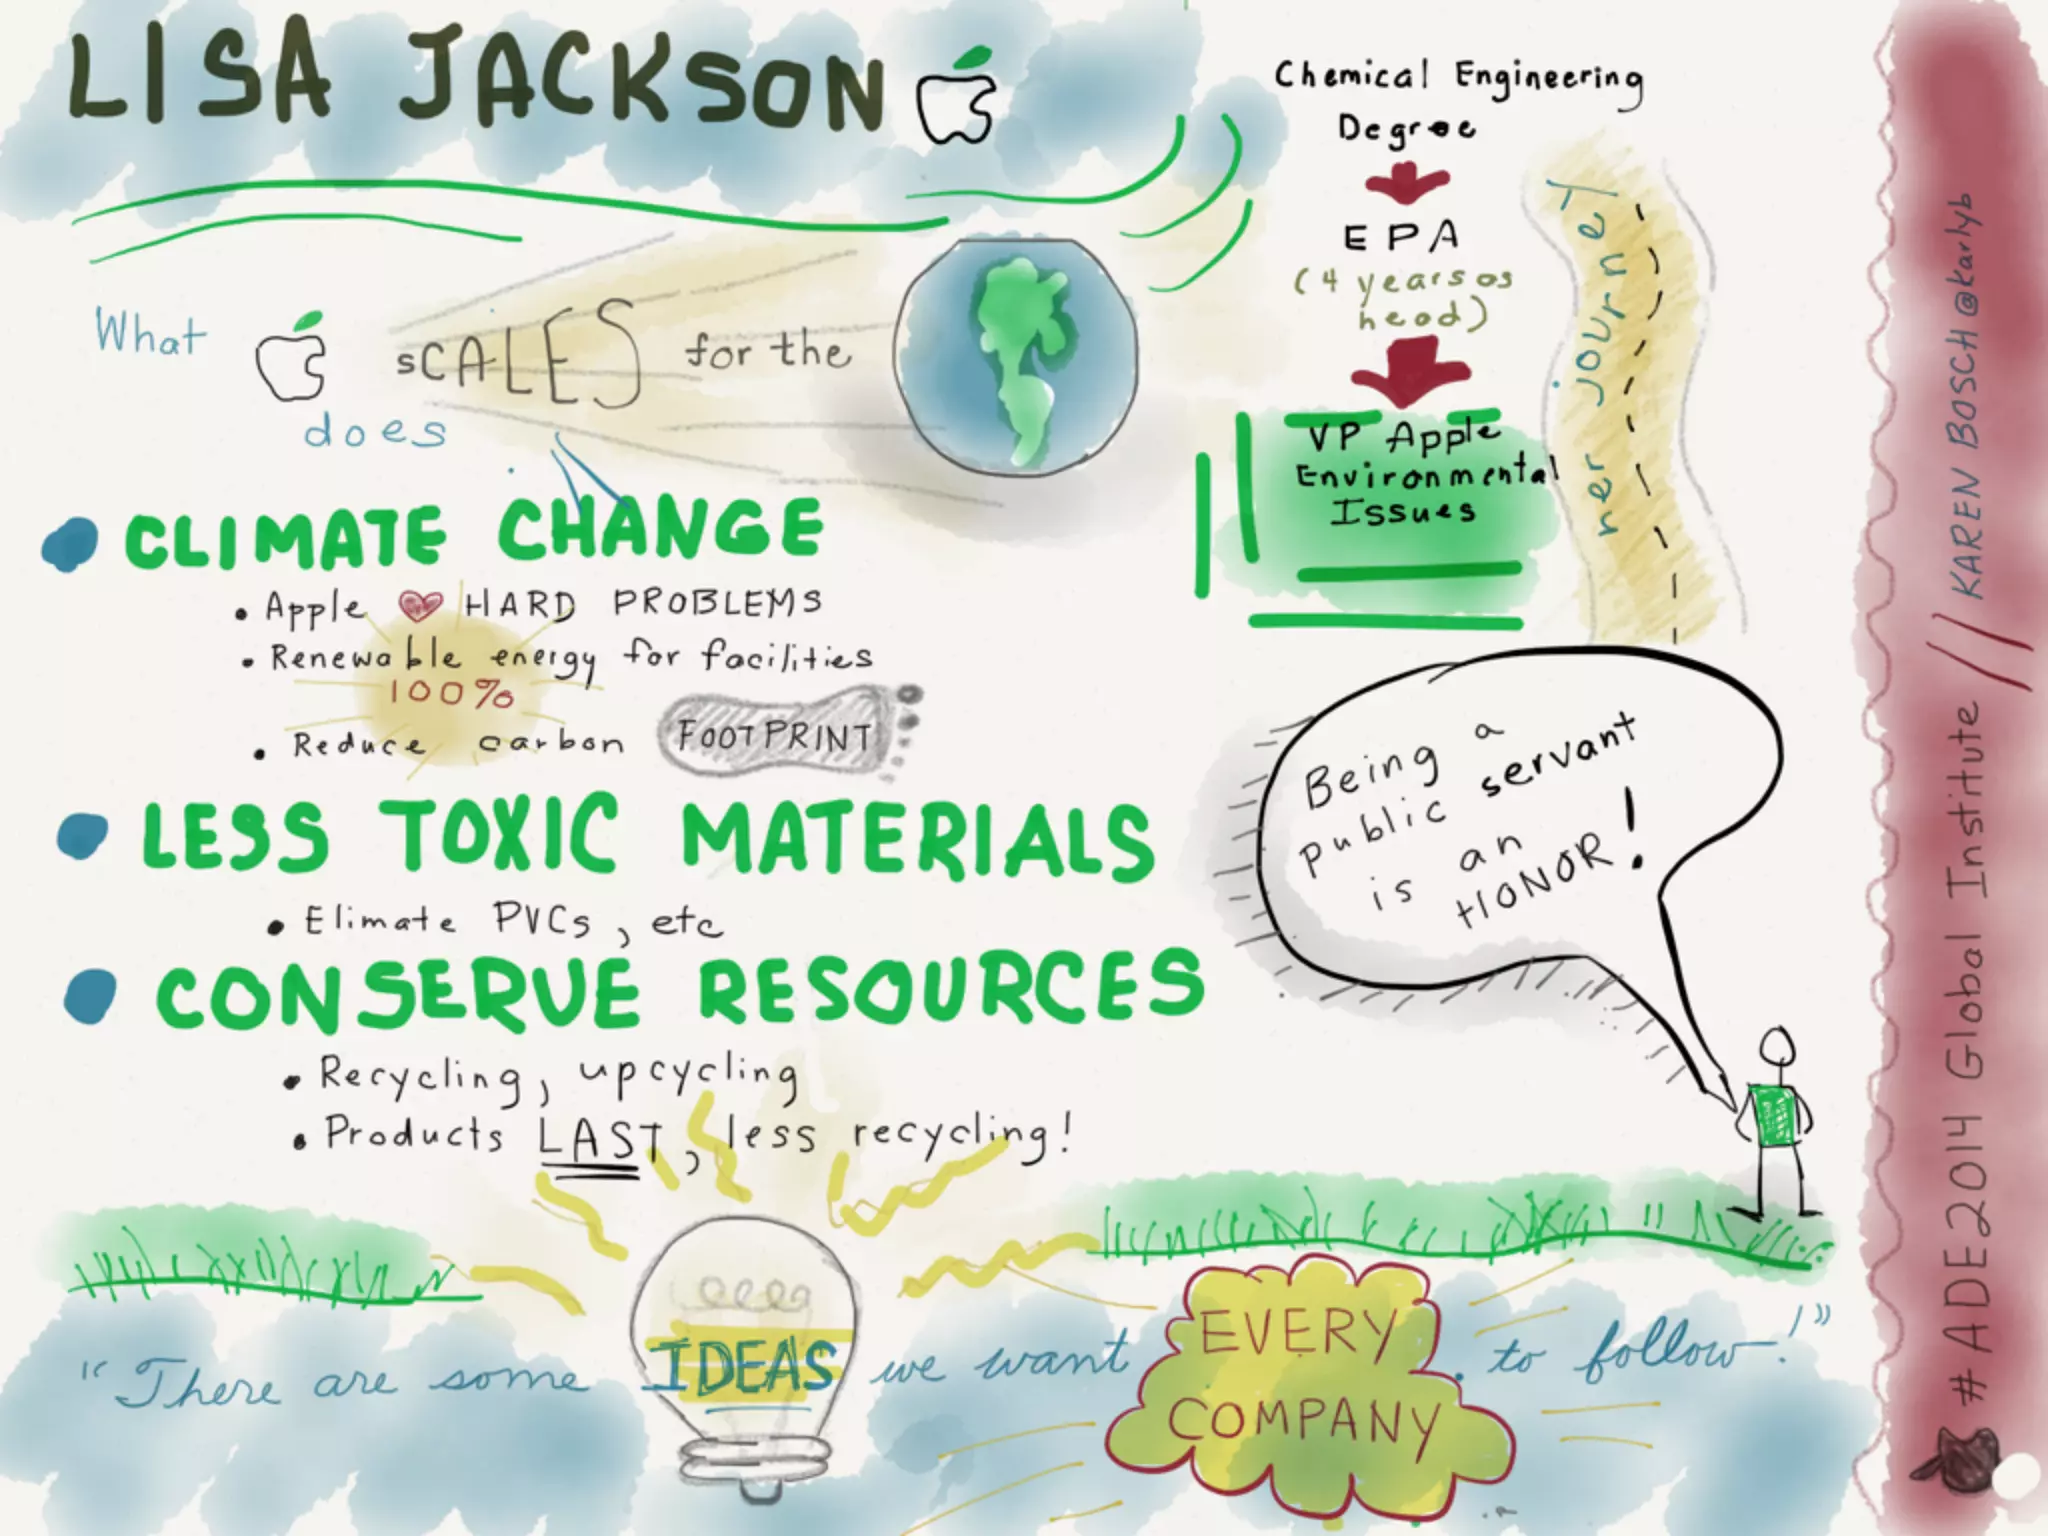 LISA JACKSON
What
does
SCALES for the
CLIMATE CHANGE
Apple HARD PROBLEMS
Renewable energy for facilities
100%
Reduce carbon FOOTPRINT
LESS TOXIC MATERIALS
Elimate PVCs, etc
CONSERVE RESOURCES
Recycling, upcycling
Products LAST, less recycling!
Chemical Engineering
Degree
EPA
(4 years as
head)
VP Apple
Environmental
Issues
her journey
Being a
public servant
is an
HONOR!
"There are some IDEAS we want EVERY
COMPANY to follow!"
#ADE2014 Global Institute // KAREN BOSCH @karlyb